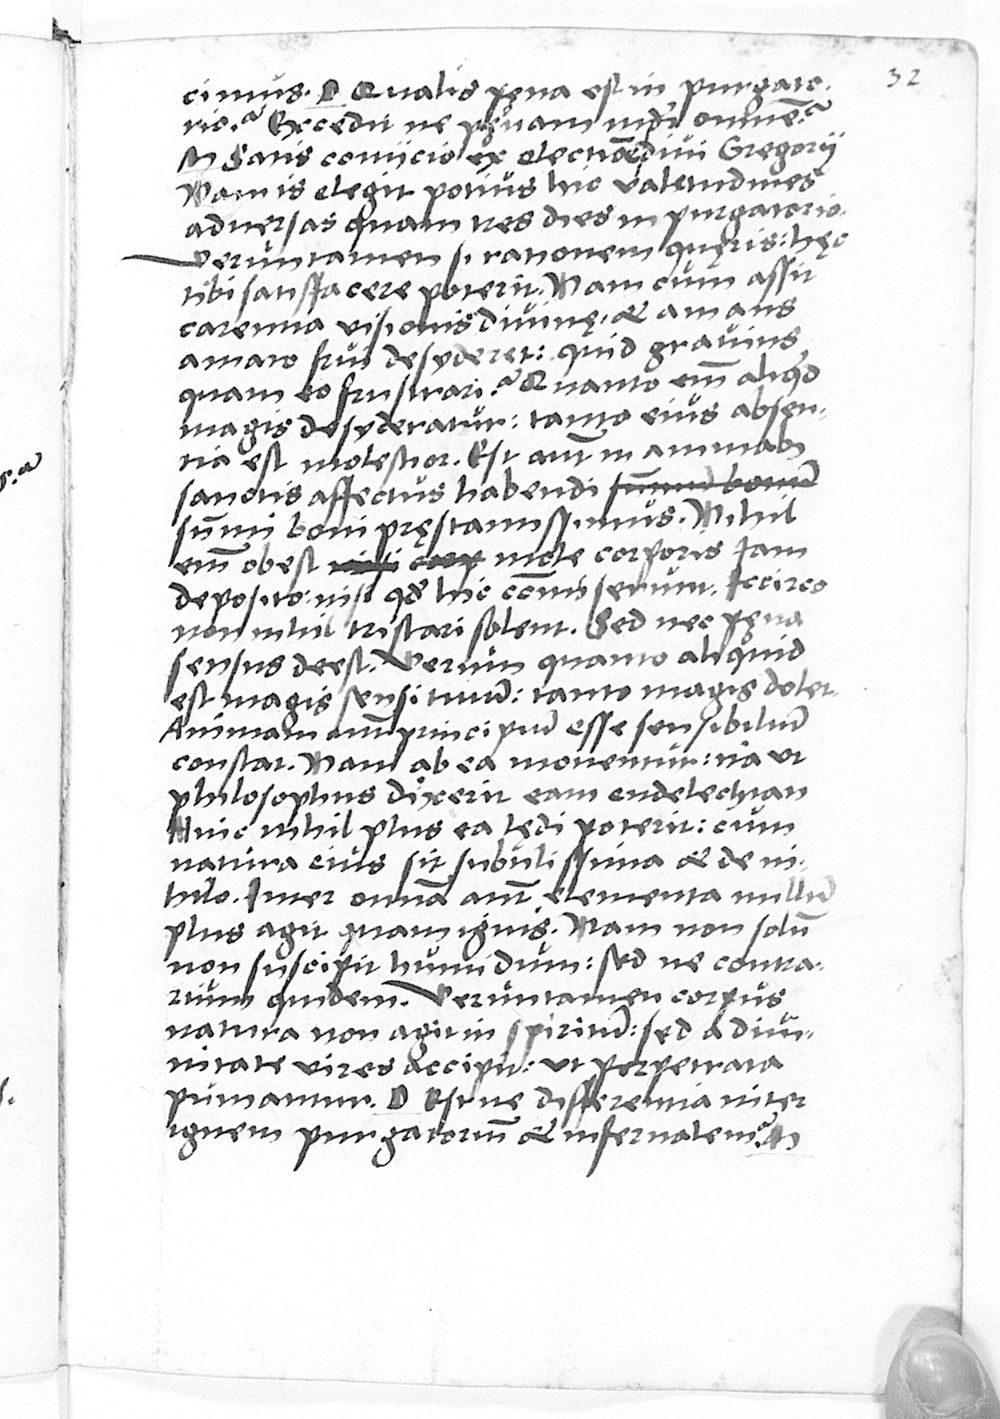 32
cimus. D Qualis pęna est in purgato-
rio? Excedit ne pęnam mūdi omnē?
M Satis coniicio ex electiōe diui Gregorij
Nam is elegit potius hic valetudines
aduersas quam tres dies in purgatorio.
Veruntamen si rationem quęris: hęc
tibi satisfacere poterit. Nam cum assit
carentia visionis diuinę, & amans
amato frui desyderet: quid grauius
quam eo frustrari? Quanto em̄ aliqd
magis desyderatur: tanto eius absen-
tia est molestior. Est aūt in animab
sanctis affectus habendi sum̄ū bonū
sum̄i boni pręstantissimus. Nihil
em̄ obest nisi corp mole corporis Iam
deposito: nisi qd hic cōmiserunt. Iccirco
non nihil tristari solent. Sed nec pęna
sensus deest. Verum quanto aliquid
est magis sensitiuū: tanto magis dolet.
Animam aūt principiū esse sensibiliū
constat. Nam ab ea mouentur: ita ut
philosophus dixerit eam endelechian
Huic nihil plus ea lędi poterit: cum
natura eius sit subtilissima & de ni-
hilo. Inter omnia aūt elementa nullū
plus agit quam ignis. Nam non solū
non suscipit humidum: sed ne contra-
rium quidem. Veruntamen corpus
natura non agit in spiritū: sed a diui-
nitate vires accipit: ut perpetrata
puniantur. D Estne differentia inter
ignem purgatoriū & infernalem? M